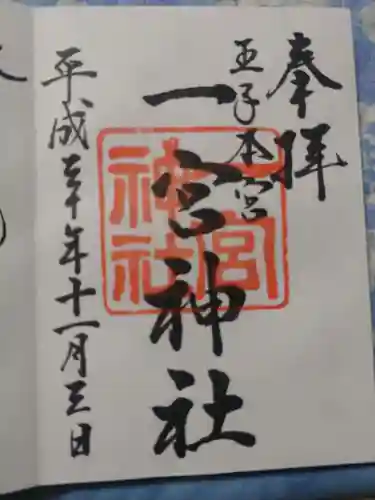 奉拝
王子本宮
一宮神社
平成三十年十一月三日
一宮
神社